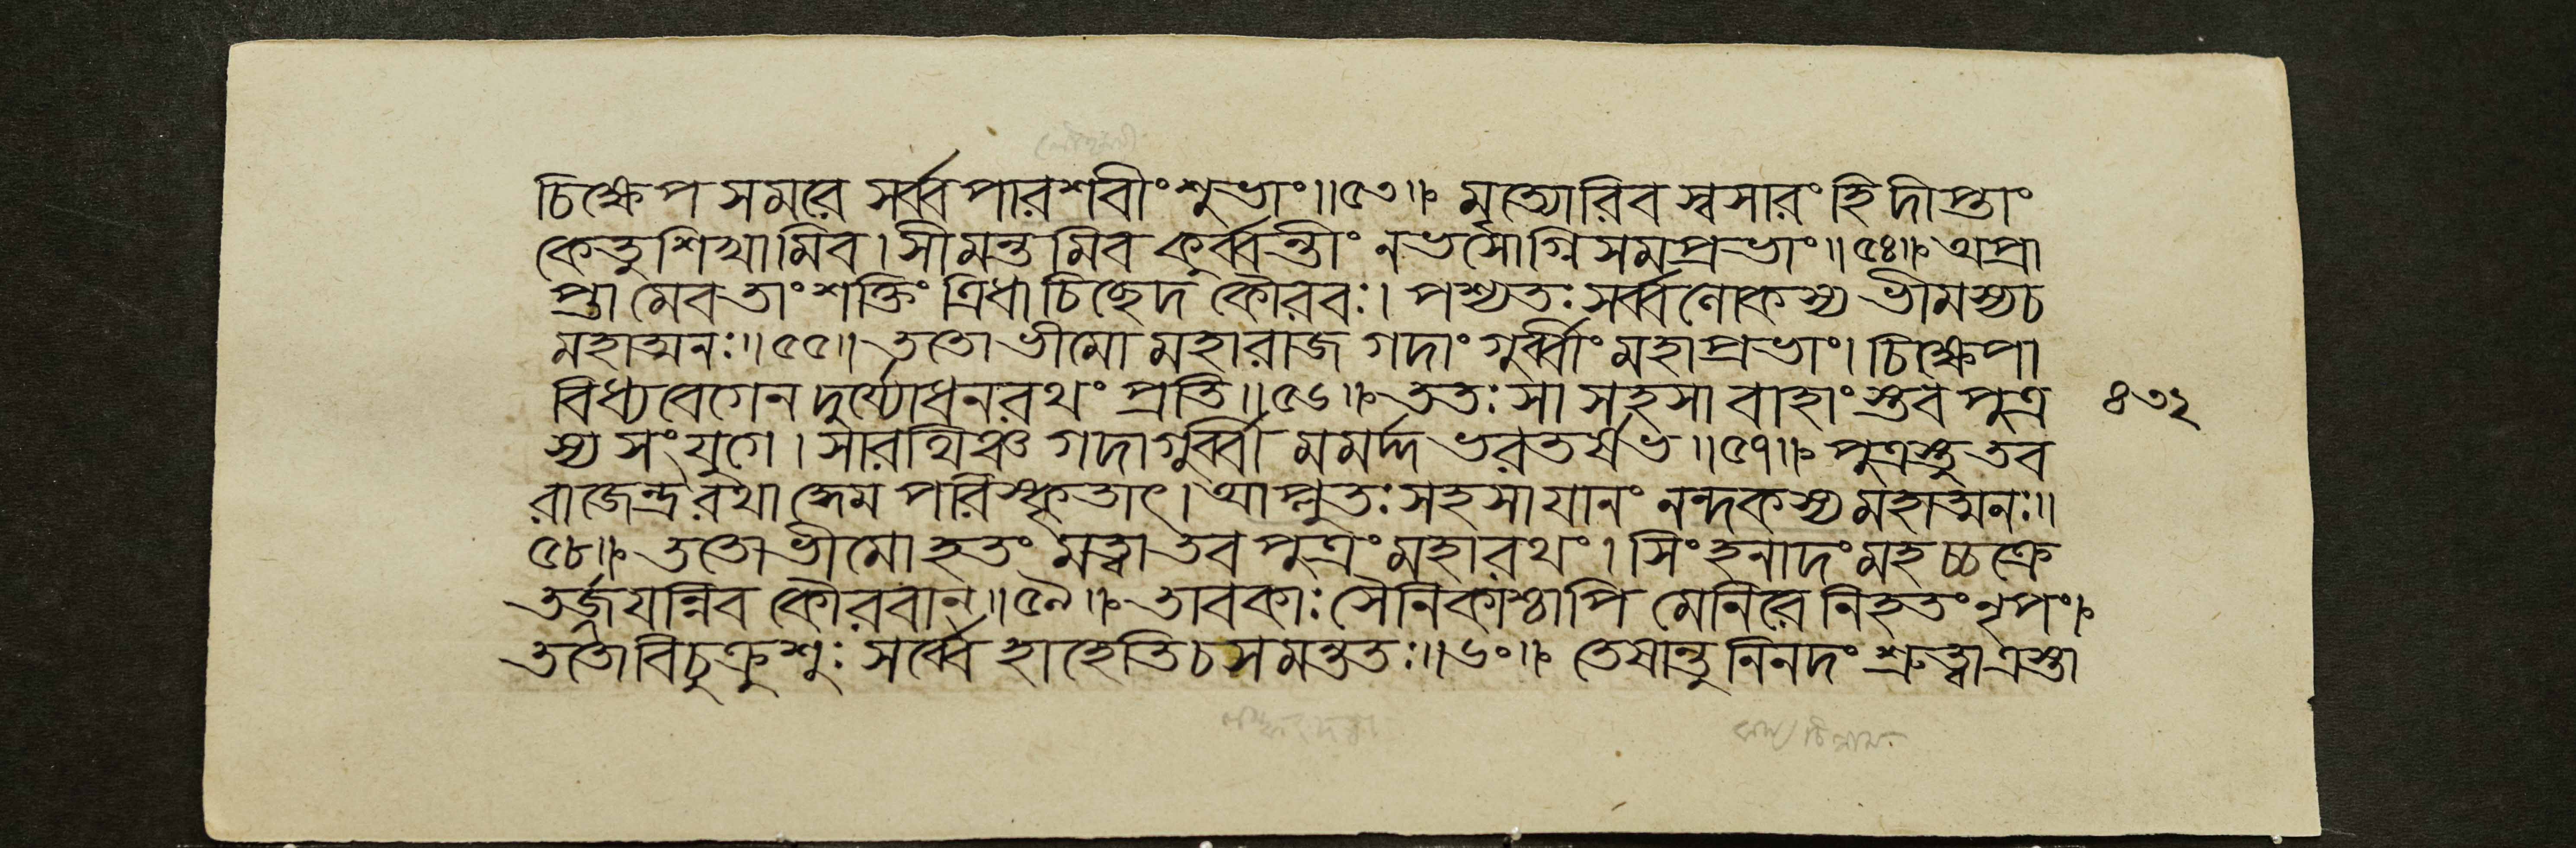 চিক্ষেপ সমরে সর্ব্বপারশবীং শুভাং॥৫৩॥ মৃত্যোরিব স্বসারং হি দীপ্তাং
কেতুশিখামিব। সীমন্তমিব কুর্ব্বন্তীং নভসোগ্নিসমপ্রভাং॥৫৪॥ অপ্রা
প্তামেব তাং শক্তিং ত্রিধা চিচ্ছেদ কৌরবঃ। পশ্যতঃ সর্ব্বলোকস্য ভীমস্য চ
মহাত্মনঃ॥৫৫॥ ততো ভীমো মহারাজ গদাং গুর্ব্বীং মহাপ্রভাং। চিক্ষেপা
বিধ্য বেগেন দুর্য্যোধনরথং প্রতি॥৫৬॥ ততঃ সা সহসা বাহাংস্তব পুত্র
৪৩২
স্য সংযুগে। সারথিঞ্চ গদা গুর্ব্বী মমর্দ্দ ভরতর্ষভ॥৫৭॥ পুত্রস্তু তব
রাজেন্দ্র রথাদ্ধেমপরিষ্কৃতাৎ। আপ্লুতঃ সহসা যানং নন্দকস্য মহাত্মনঃ॥
৫৮॥ ততো ভীমো হতং মত্বা তব পুত্রং মহারথং। সিংহনাদং মহচ্চক্রে
তর্জয়ন্নিব কৌরবান্॥৫৯॥ তাবকাঃ সৈনিকাশ্চাপি মেনিরে নিহতং নৃপং।
ততো বিচুক্রুশুঃ সর্ব্বে হাহেতি চ সমন্ততঃ॥৬০॥ তেষান্তু নিনদং শ্রুত্বা ত্রস্তা